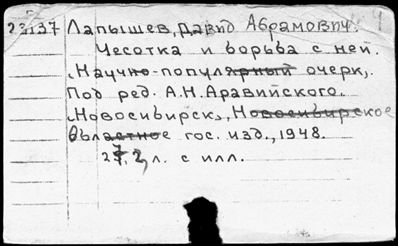 23137 Лапышев, Давид Абрамович.
Чесотка и борьба с ней.
"Научно-популярный очерк".
Под ред. А.Н. Аравийского.
"Новосибирск", Новосибирское
областное гос. изд., 1948.
л. с илл.